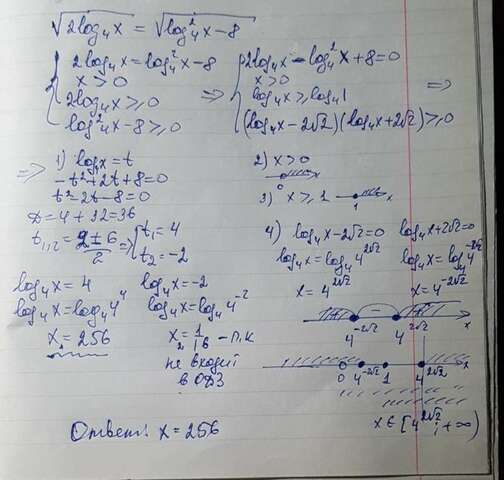 √(2log₄x) = √(log₄²x-8)
{ 2log₄x = log₄²x-8
x > 0
2log₄x ≥ 0
log₄²x-8 ≥ 0
=> { 2log₄x - log₄²x+8=0
x > 0
log₄x ≥ log₄1
(log₄x-2√2)(log₄x+2√2) ≥ 0 =>
=> 1) log₄x = t
-t²+2t+8=0
t²-2t-8=0
D = 4+32=36
t₁,₂ = (2±6)/2 => [ t₁ = 4
t₂ = -2
log₄x = 4
log₄x = log₄4⁴
x₁ = 256
log₄x = -2
log₄x = log₄4⁻²
x₂ = 1/16 - п.к
не входит
в ОДЗ
2) x > 0
0 x
3) x ≥ 1
1 x
4) log₄x-2√2=0 log₄x+2√2=0
log₄x = log₄4^(2√2) log₄x = log₄4^(-2√2)
x = 4^(2√2) x = 4^(-2√2)
+ - +
4^(-2√2) 4^(2√2) x
0 4^(-2√2) 1 4^(2√2) x
x ∈ [4^(2√2); +∞)
Ответ: x = 256